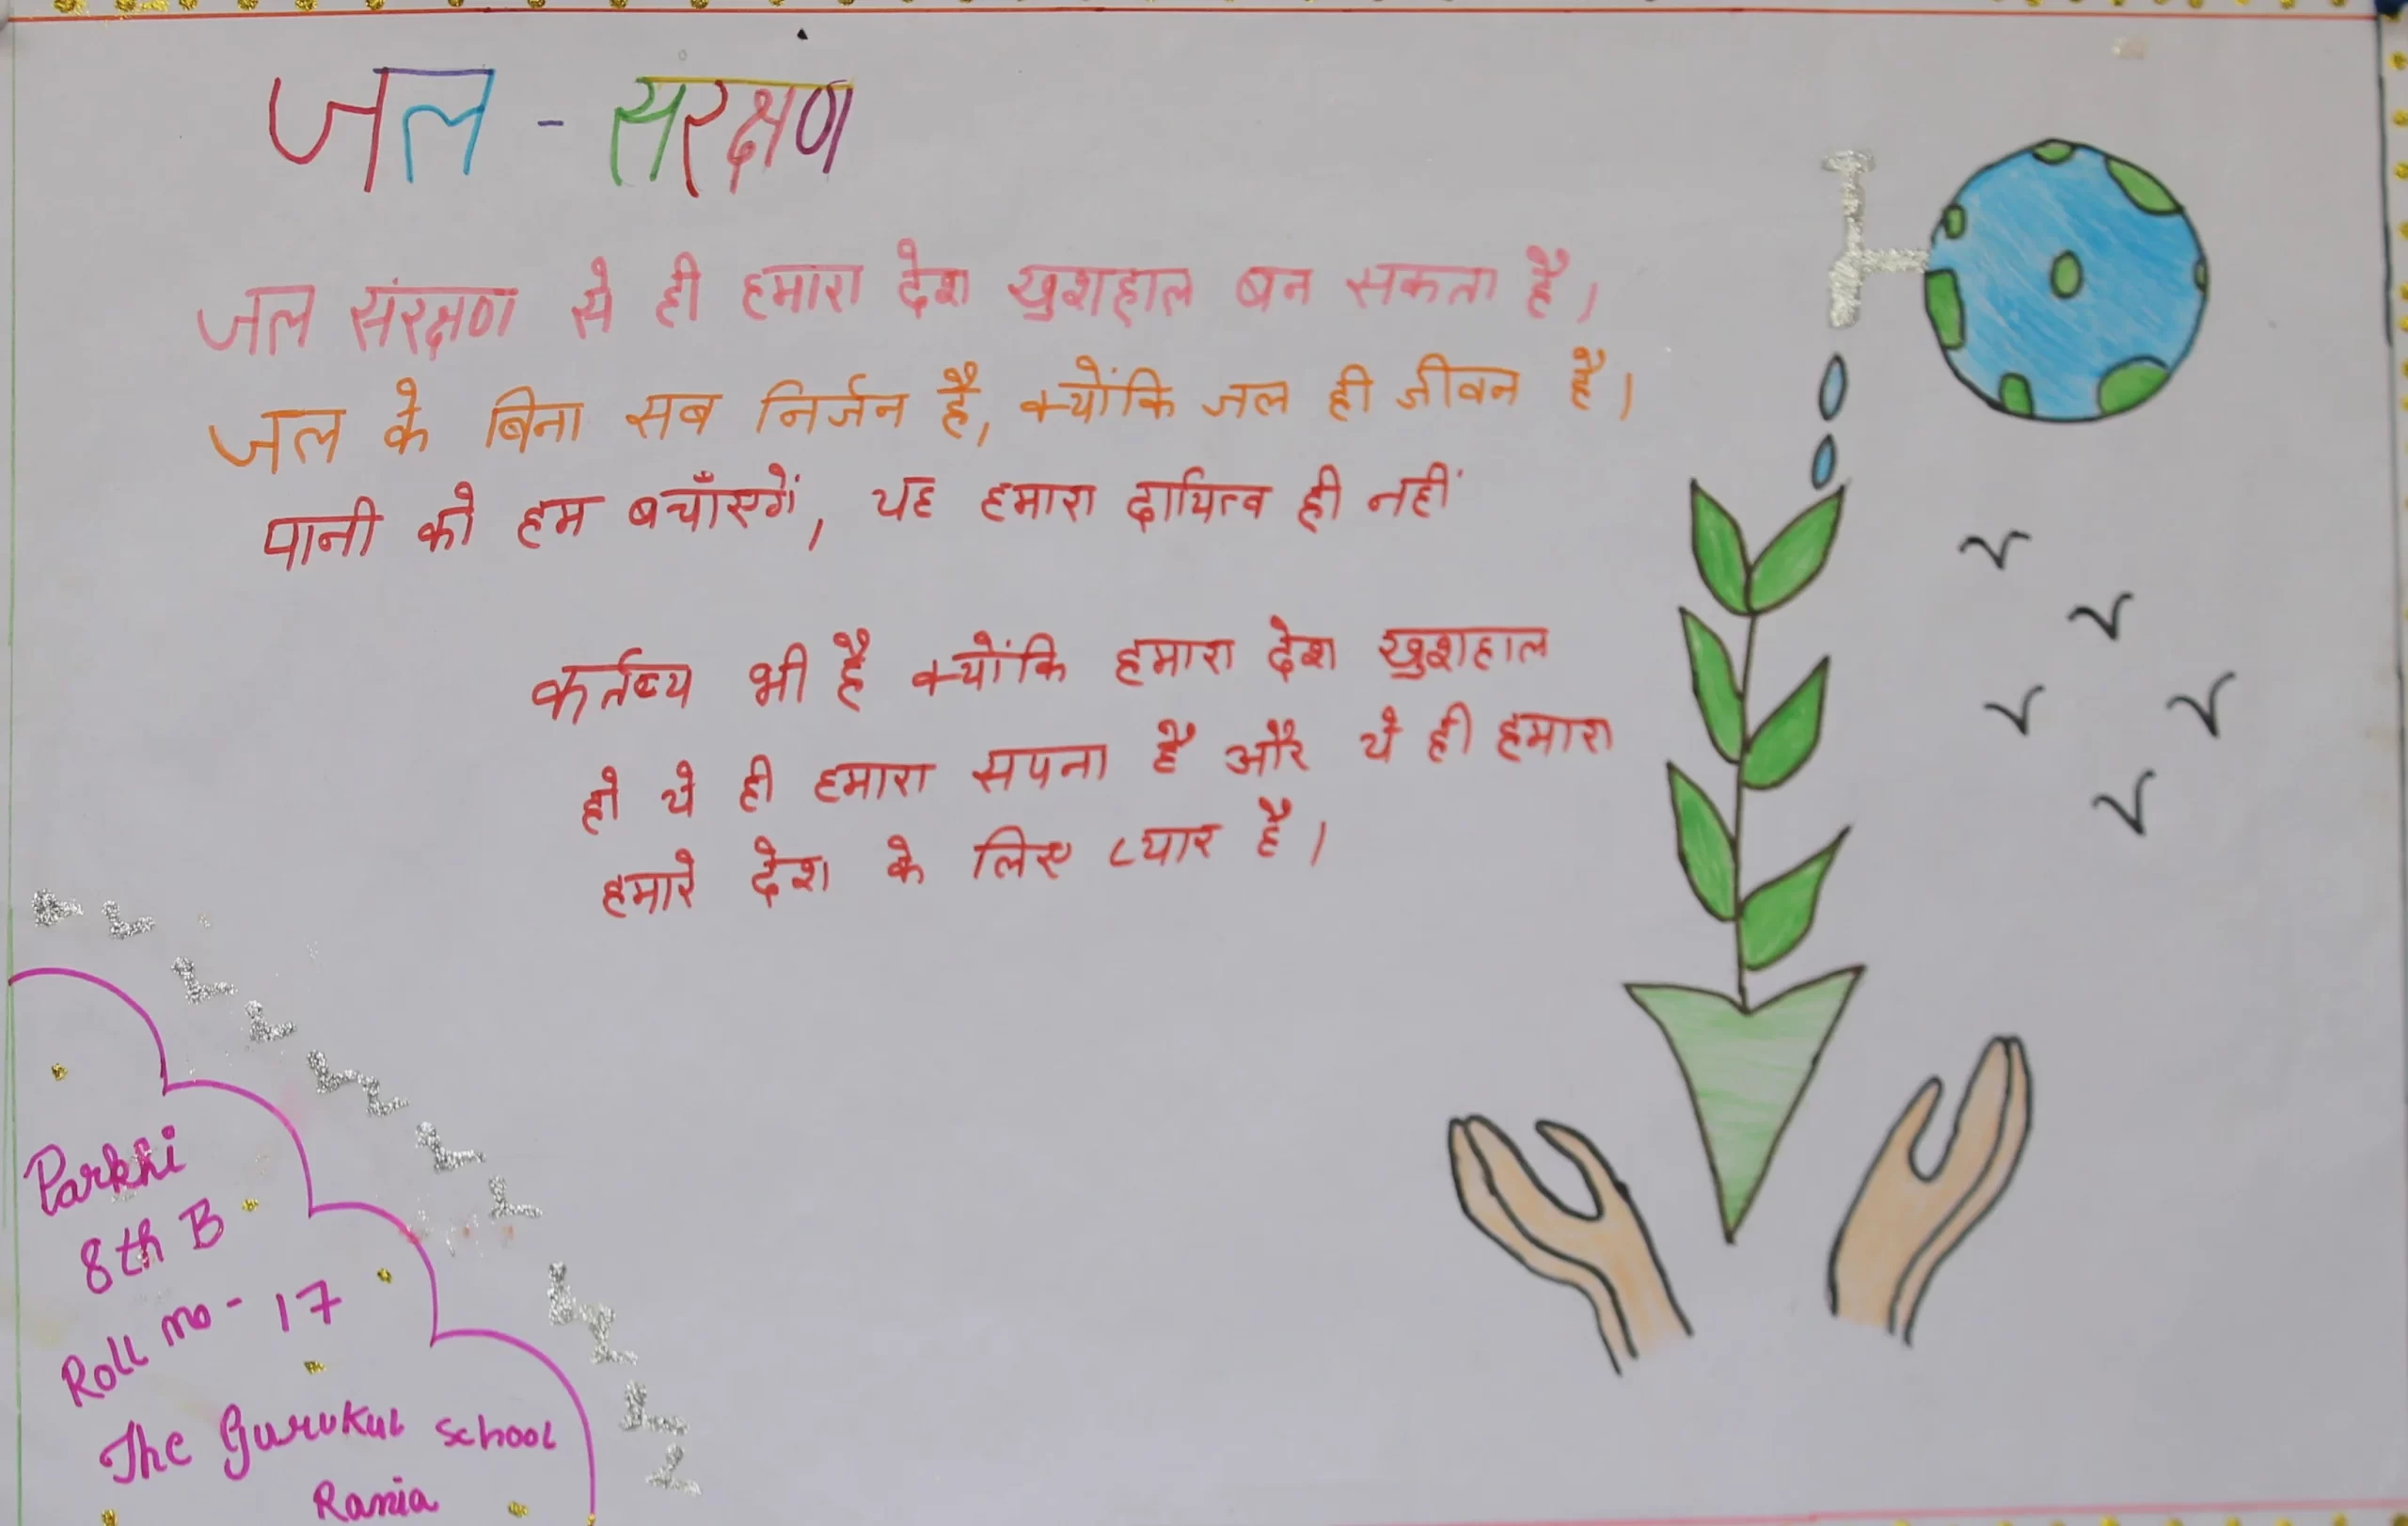 जल - सरक्षण
जल संरक्षण से ही हमारा देश खुशहाल बन सकता है।
जल के बिना सब निर्जन है, क्योंकि जल ही जीवन है।
पानी को हम बचाँएगें, यह हमारा दायित्व ही नहीं
कर्तव्य भी है क्योंकि हमारा देश खुशहाल
हो ये ही हमारा सपना है और ये ही हमारा
हमारे देश के लिए प्यार है।
Parkhi
8th B
Roll no - 17
The Gurukul School
Rania